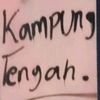 Kampung
Tengah.